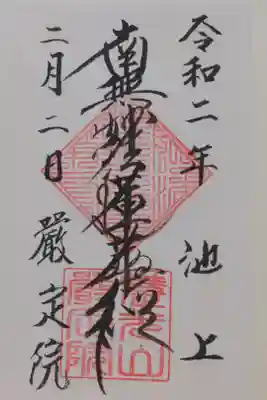 令和二年 池上
南無妙法蓮華経
二月二日 嚴定院